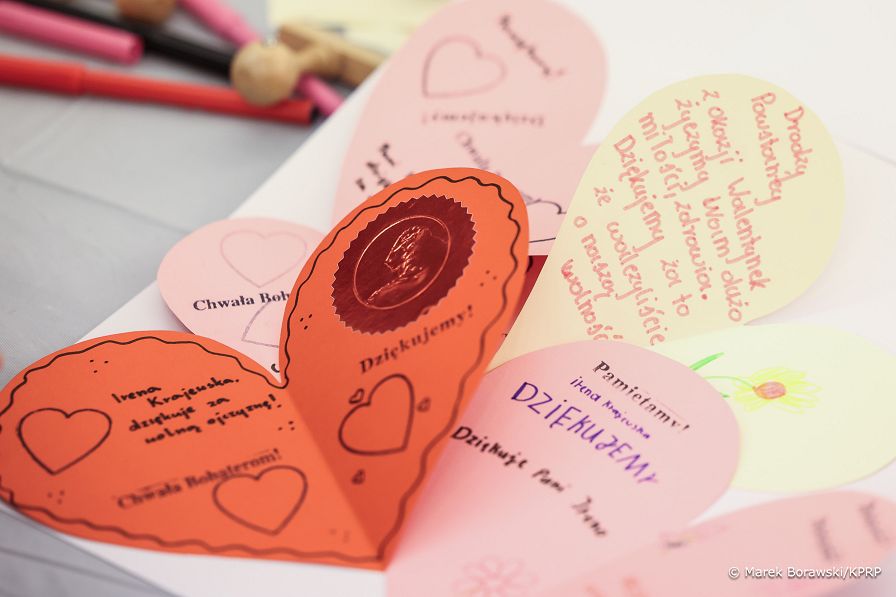 Pamiętamy!
Drodzy
Powstańcy
z okazji Walentynek
życzymy Wam dużo
miłości, zdrowia.
Dziękujemy za to
że walczyliście
o naszą
wolność
Chwała Boh
Dziękujemy!
Irena
Krajewska.
dziękuje za
wolną ojczyznę!
Chwała Bohaterom!
Pamiętamy!
irena Krajewska
DZIĘKUJEMY
Dziękuje Pani Irene
© Marek Borawski/KPRP